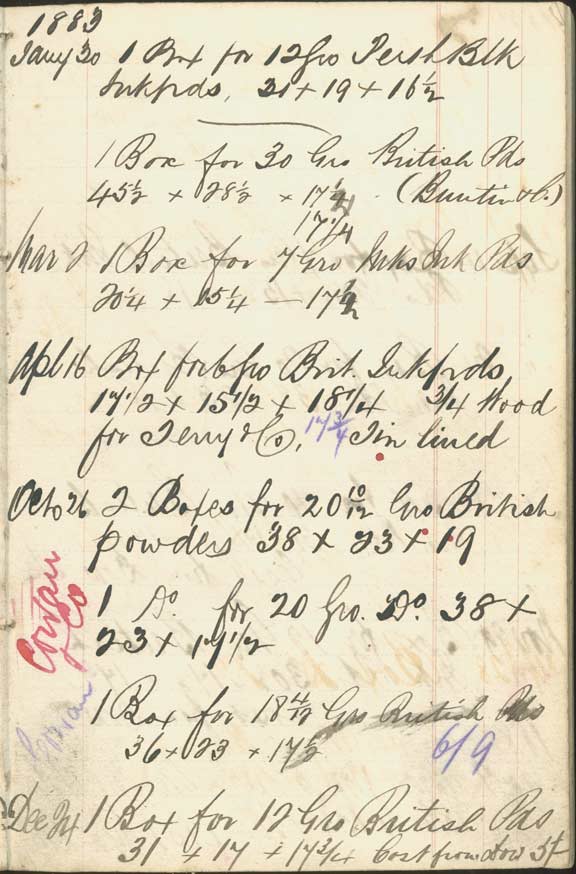 1883
Jany 30 1 Box for 12 Gro Persh Blk
Inkpds, 21 + 19 + 16½
1 Box for 30 Gro British Pds
45½ × 28½ × 17¼ (Buntin & Co.)
17¼
Mar 2 1 Box for 7 Gro Inks Ink Pds
20¼ + 15¼ — 17½
Apl 16 Box for 6 Gro Brit. Inkpds
17 1/2 × 15 1/2 × 18 1/4 3/4 Wood
for Terry & Co, 17 3/4 Tin lined
Octo 26 2 Boxes for 20 10/12 Gro British
powders 38 × 23 × 19
Cowan & Co
1 Do. for 20 Gro. Do. 38 ×
23 × 17 1/2
1 Box for 18 4/12 Gro British Pds
36 × 23 × 17½ 6/9
Dec 24 1 Box for 12 Gro British Pds
31 + 17 + 17 3/4 Cost from Dow 5/